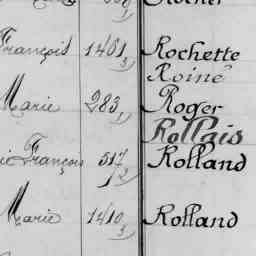 François 1461/3 Rochette
Roiné
Marie 283/1 Roger
Rollais
François 517/2 Rolland
Marie 1410/3 Rolland